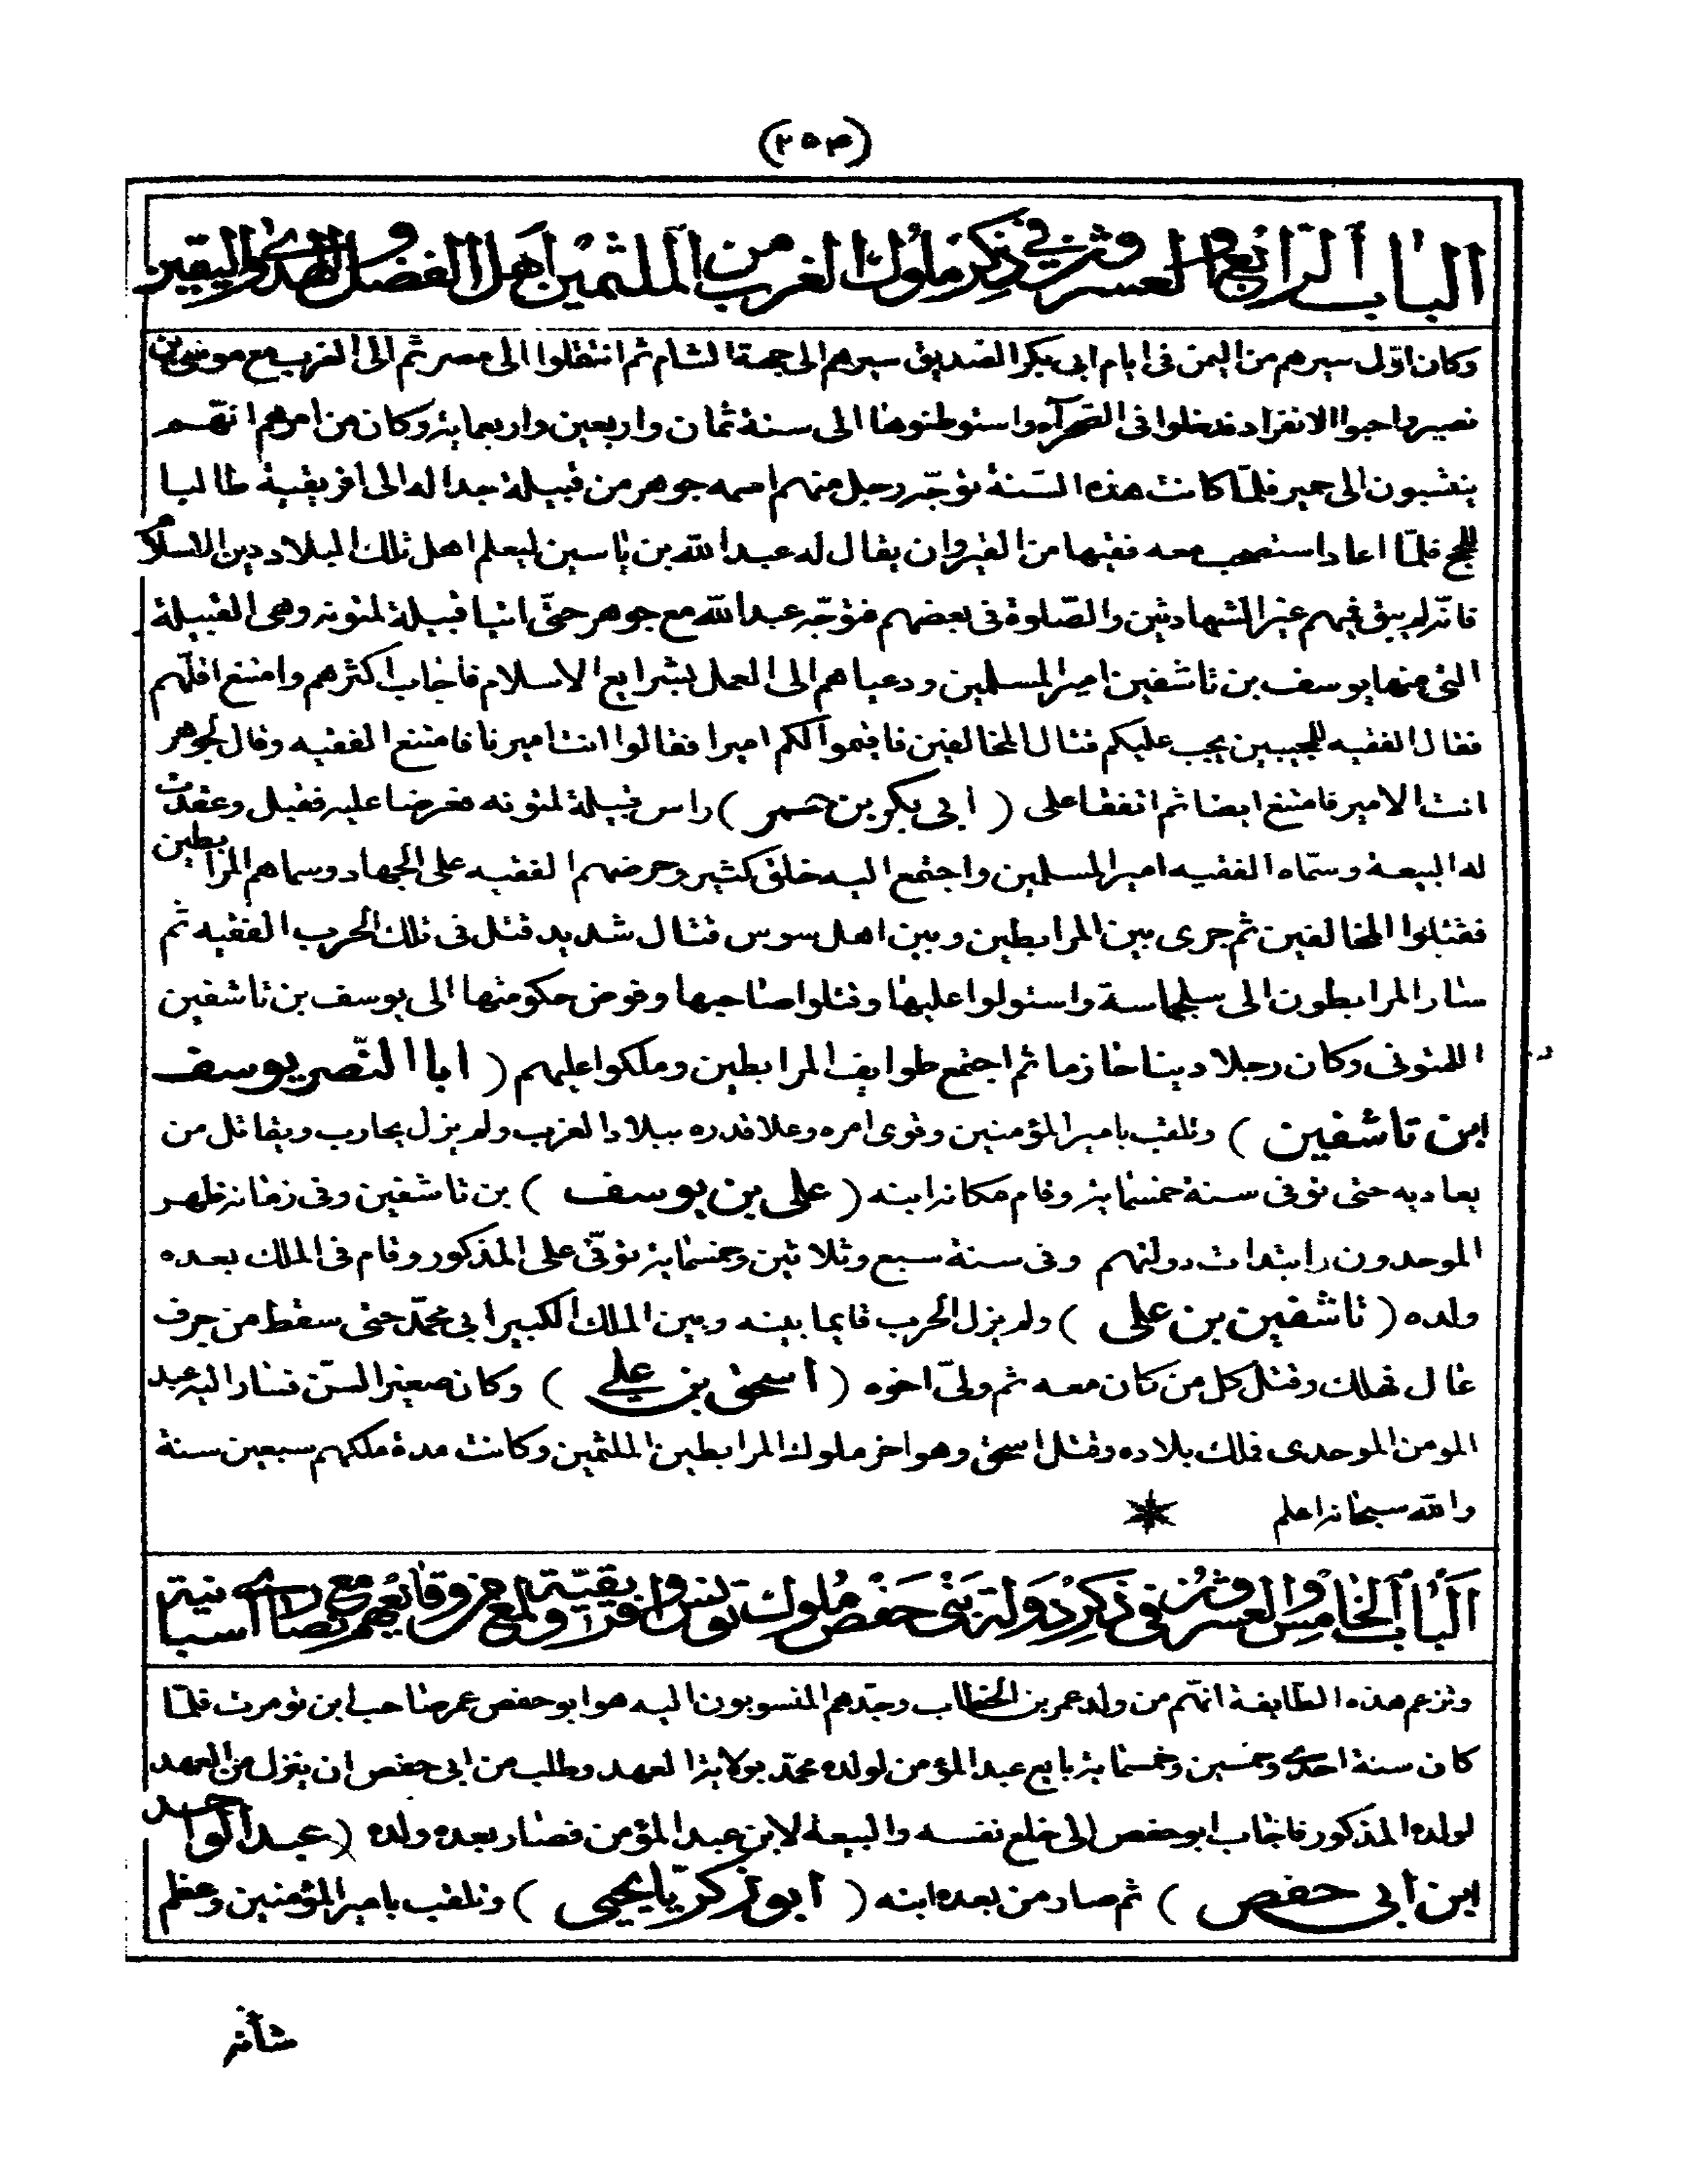 (٢٥٣)
الباب الرابع والعشرون في ذكر ملوك الغرب من الملثمين اهل الفضل والهدى واليقين
وكان اوّل سيرهم من اليمن فى ايام ابى بكر الصديق سيرهم الى جهة الشام ثم انتقلوا الى مصر ثم الى الغرب مع موسى بن
نصير واحبوا الانفراد فدخلوا فى الصحرآء واستوطنوها الى سنة ثمان واربعين واربعماية وكان من امرهم انهم
ينتسبون الى حمير فلمّا كانت هذه السّنة توجّه رجل منهم اسمه جوهر من قبيلة جداله الى افريقية طالبا
للحج فلمّا اعاد استصحب معه فقيها من القيروان يقال له عبد الله بن ياسين ليعلم اهل تلك البلاد دين الاسلام
فانّه لم يبق فيهم غير الشهادتين والصّلوة فى بعضهم فتوجّه عبد الله مع جوهر حتّى اتيا قبيلة لمتونه وهى القبيلة
التى منها يوسف بن تاشفين امير المسلمين ودعياهم الى العمل بشرايع الاسلام فاجاب اكثرهم وامتنع اقلّهم
فقال الفقيه للمجيبين يجب عليكم قتال المخالفين فاقيموا لكم اميرا فقالوا انت اميرنا فامتنع الفقيه وقال لجوهر
انت الامير فامتنع ايضا ثم اتفقا على ( ابى بكر بن عمر ) راس قبيلة لمتونه فعرضا عليه فقبل وعقدت
له البيعة وسمّاه الفقيه امير المسلمين واجتمع اليه خلق كثير وحرضهم الفقيه على الجهاد وسماهم المرابطين
فقتلوا المخالفين ثم جرى بين المرابطين وبين اهل سوس قتال شديد قتل فى تلك الحرب الفقيه ثم
سار المرابطون الى سجلماسة واستولوا عليها وقتلوا صاحبها وفوض حكومتها الى يوسف بن تاشفين
اللمتونى وكان رجلا دينا حازما ثم اجتمع طوايف المرابطين وملكوا عليهم ( ابا النّصر يوسف
ابن تاشفين ) وتلقب بامير المؤمنين وقوى امره وعلا قدره ببلاد الغرب ولم يزل يحارب ويقاتل من
يعاديه حتى توفى سنة خمسماية وقام مكانه ابنه ( على بن يوسف ) بن تاشفين وفى زمانه ظهر
الموحدون وابتدات دولتهم وفى سنة سبع وثلاثين وخمسماية توفّى على المذكور وقام فى الملك بعده
ولده ( تاشفين بن على ) ولم يزل الحرب قايما بينه وبين الملك الكبير ابى محمّد حتى سقط من جرف
عال فهلك وقتل كل من كان معه ثم ولىّ اخوه ( اسحق بن علي ) وكان صغير السّن فسار اليه عبد
المومن الموحدى فملك بلاده وقتل اسحق وهو اخر ملوك المرابطين الملثمين وكانت مدة ملكهم سبعين سنة
والله سبحانه اعلم
الباب الخامس والعشرون في ذكر دولة بني حفص ملوك تونس وافريقيّة ولمع من وقائعهم مع نصارى اسبانية
وتزعم هذه الطّايفة انهّم من ولد عمر بن الخطاب وجدّهم المنسوبون اليه هو ابو حفص عمر صاحب ابن تومرت فلمّا
كان سنة احدى وخمسين وخمسماية بايع عبد المؤمن لولده محمّد بولاية العهد وطلب من ابى حفص ان ينزل من العهد
لولده المذكور فاجاب ابو حفص الى خلع نفسه والبيعة لابن عبد المؤمن فصار بعده ولده ( عبد الواحد
ابن ابي حفص ) ثم صار من بعده ابنه ( ابو زكريّا يحيى ) وتلقب بامير المؤمنين وعظم
شأنه